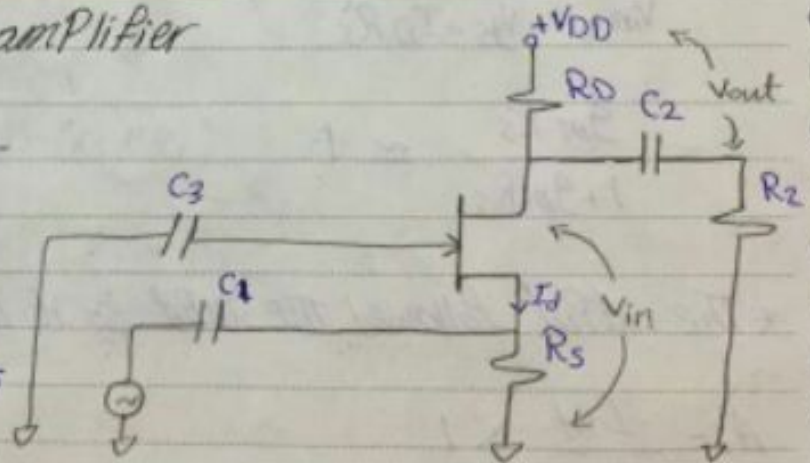 amPlifier
+VDD
RD
Vout
C2
R2
C3
C1
Id
Vin
RS